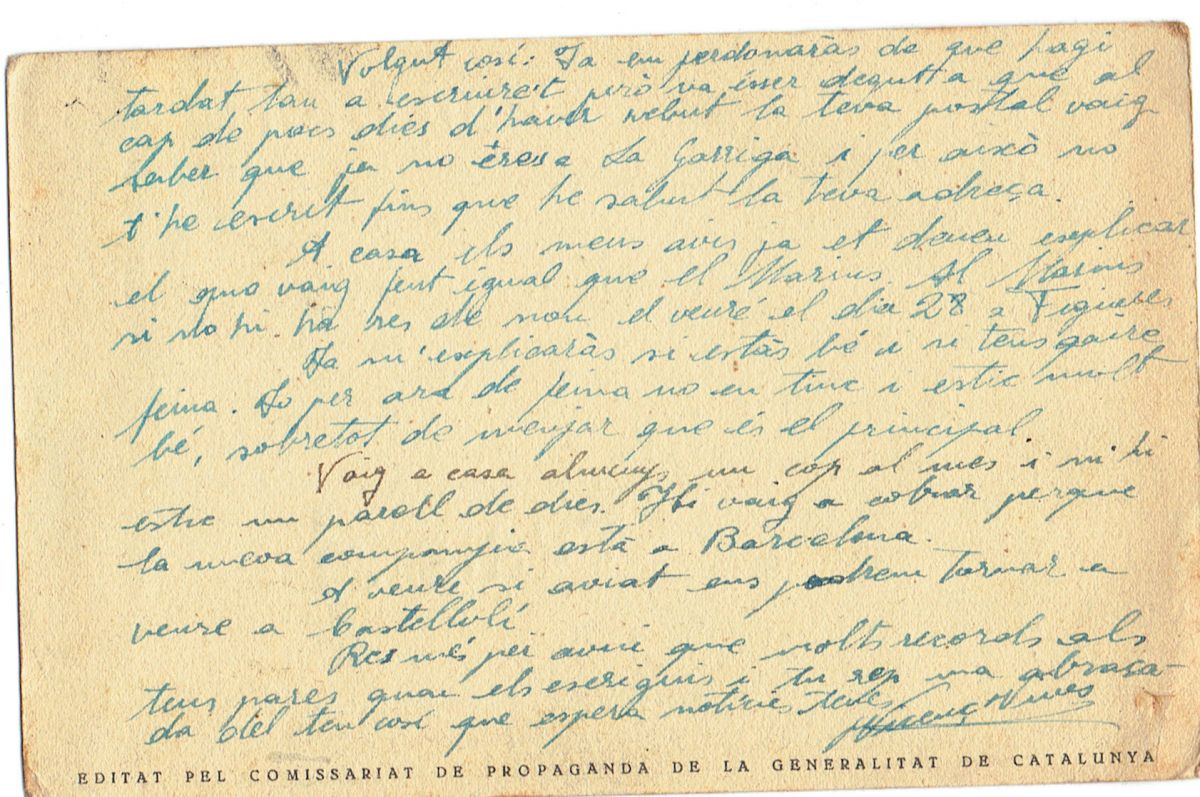 Volgut cosí: Ja em perdonaràs de que hagi
tardat tan a escriure't però va ésser degutta que al
cap de pocs dies d'haver rebut la teva postal vaig
saber que ja no ères a La Garriga i per això no
t'he escrit fins que he sabut la teva adreça.
A casa els meus avis ja et deuen explicar
el que vaig fent igual que el Marius. Al Marius
si no hi ha res de nou el veuré el dia 28 a Figueres
Ja m'explicaràs si estàs bé i si tens gaire
feina. Jo per ara de feina no en tinc i estic molt
bé, sobretot de menjar que és el principal.
Vaig a casa almenys un cop al mes i m'hi
estic un parell de dies. Hi vaig a cobrar perque
la meva companyia està a Barcelona.
A veure si aviat ens podrem tornar a
veure a Castellolí
Res més per avui que molts records als
teus pares quan els escriguis i tu rep una abraça-
da del teu cosí que espera notícies teves
Vicenç
EDITAT PEL COMISSARIAT DE PROPAGANDA DE LA GENERALITAT DE CATALUNYA